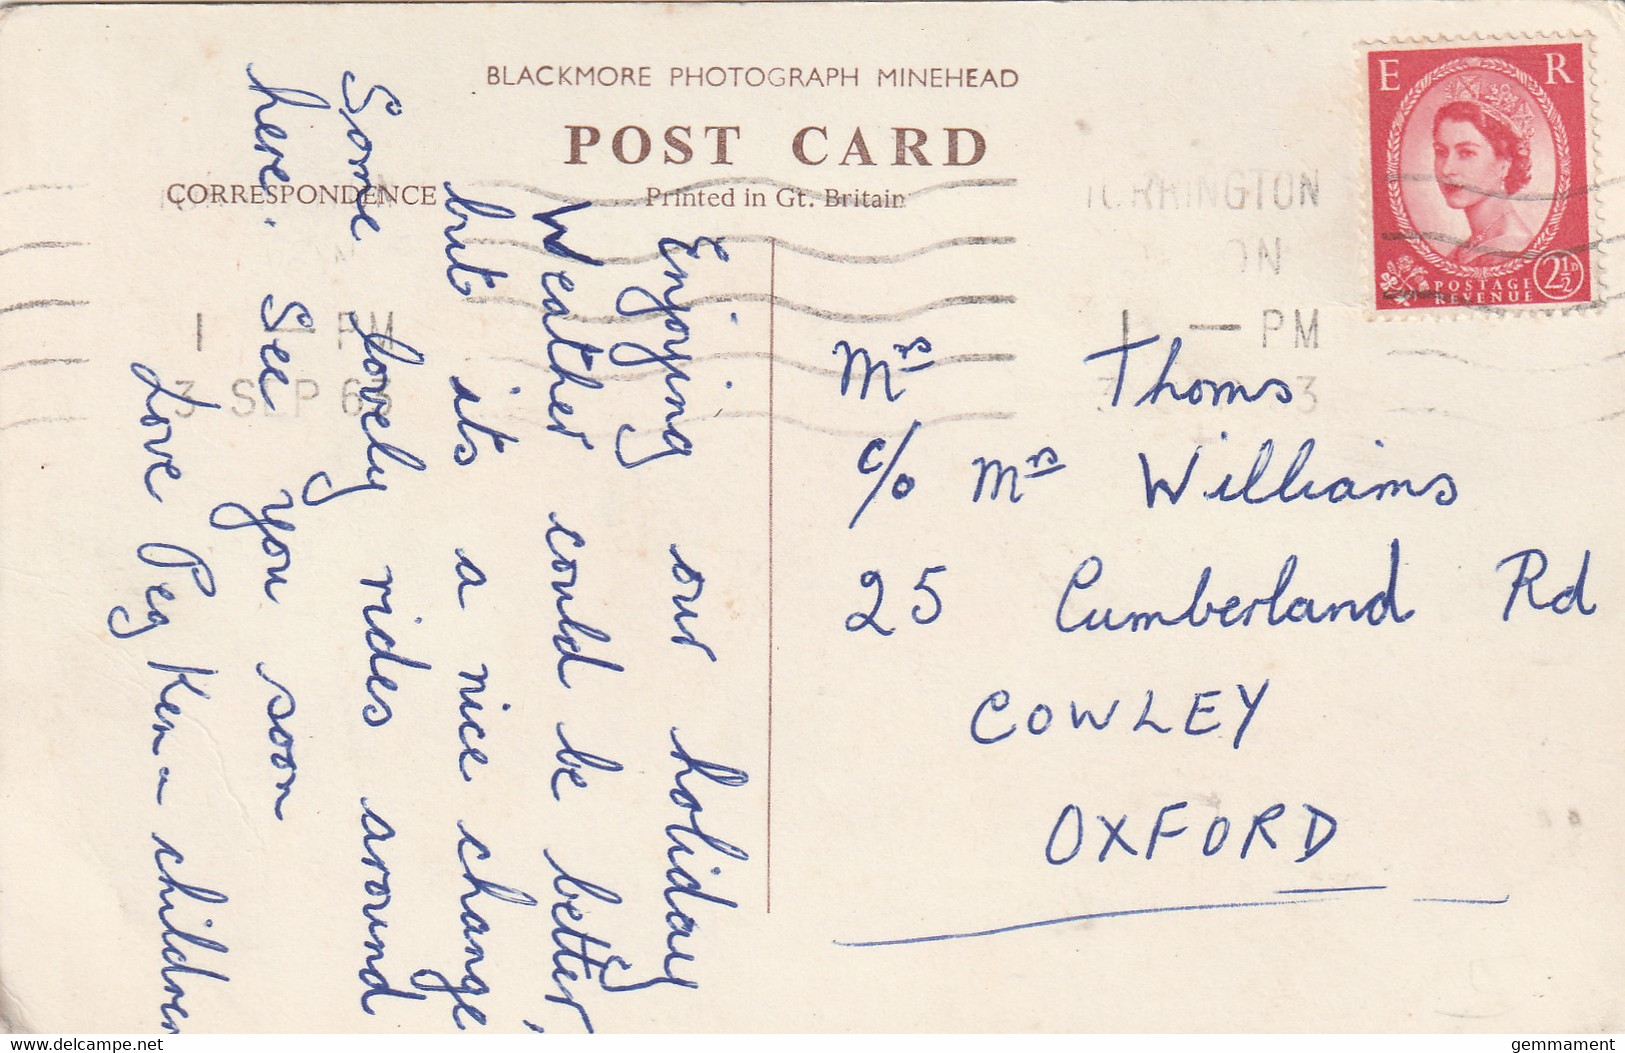 BLACKMORE PHOTOGRAPH MINEHEAD
POST CARD
CORRESPONDENCE
Printed in Gt. Britain
E R
POSTAGE
REVENUE
2½D
TORRINGTON
1 - PM
3 SEP 63
1 - PM
3
Enjoying our holiday
Weather could be better,
but its a nice change
Some lovely rides around
here. See you soon
Love Peg Ken & children
Mrs Thoms
c/o Mrs Williams
25 Cumberland Rd
COWLEY
OXFORD
www.delcampe.net
gemmament